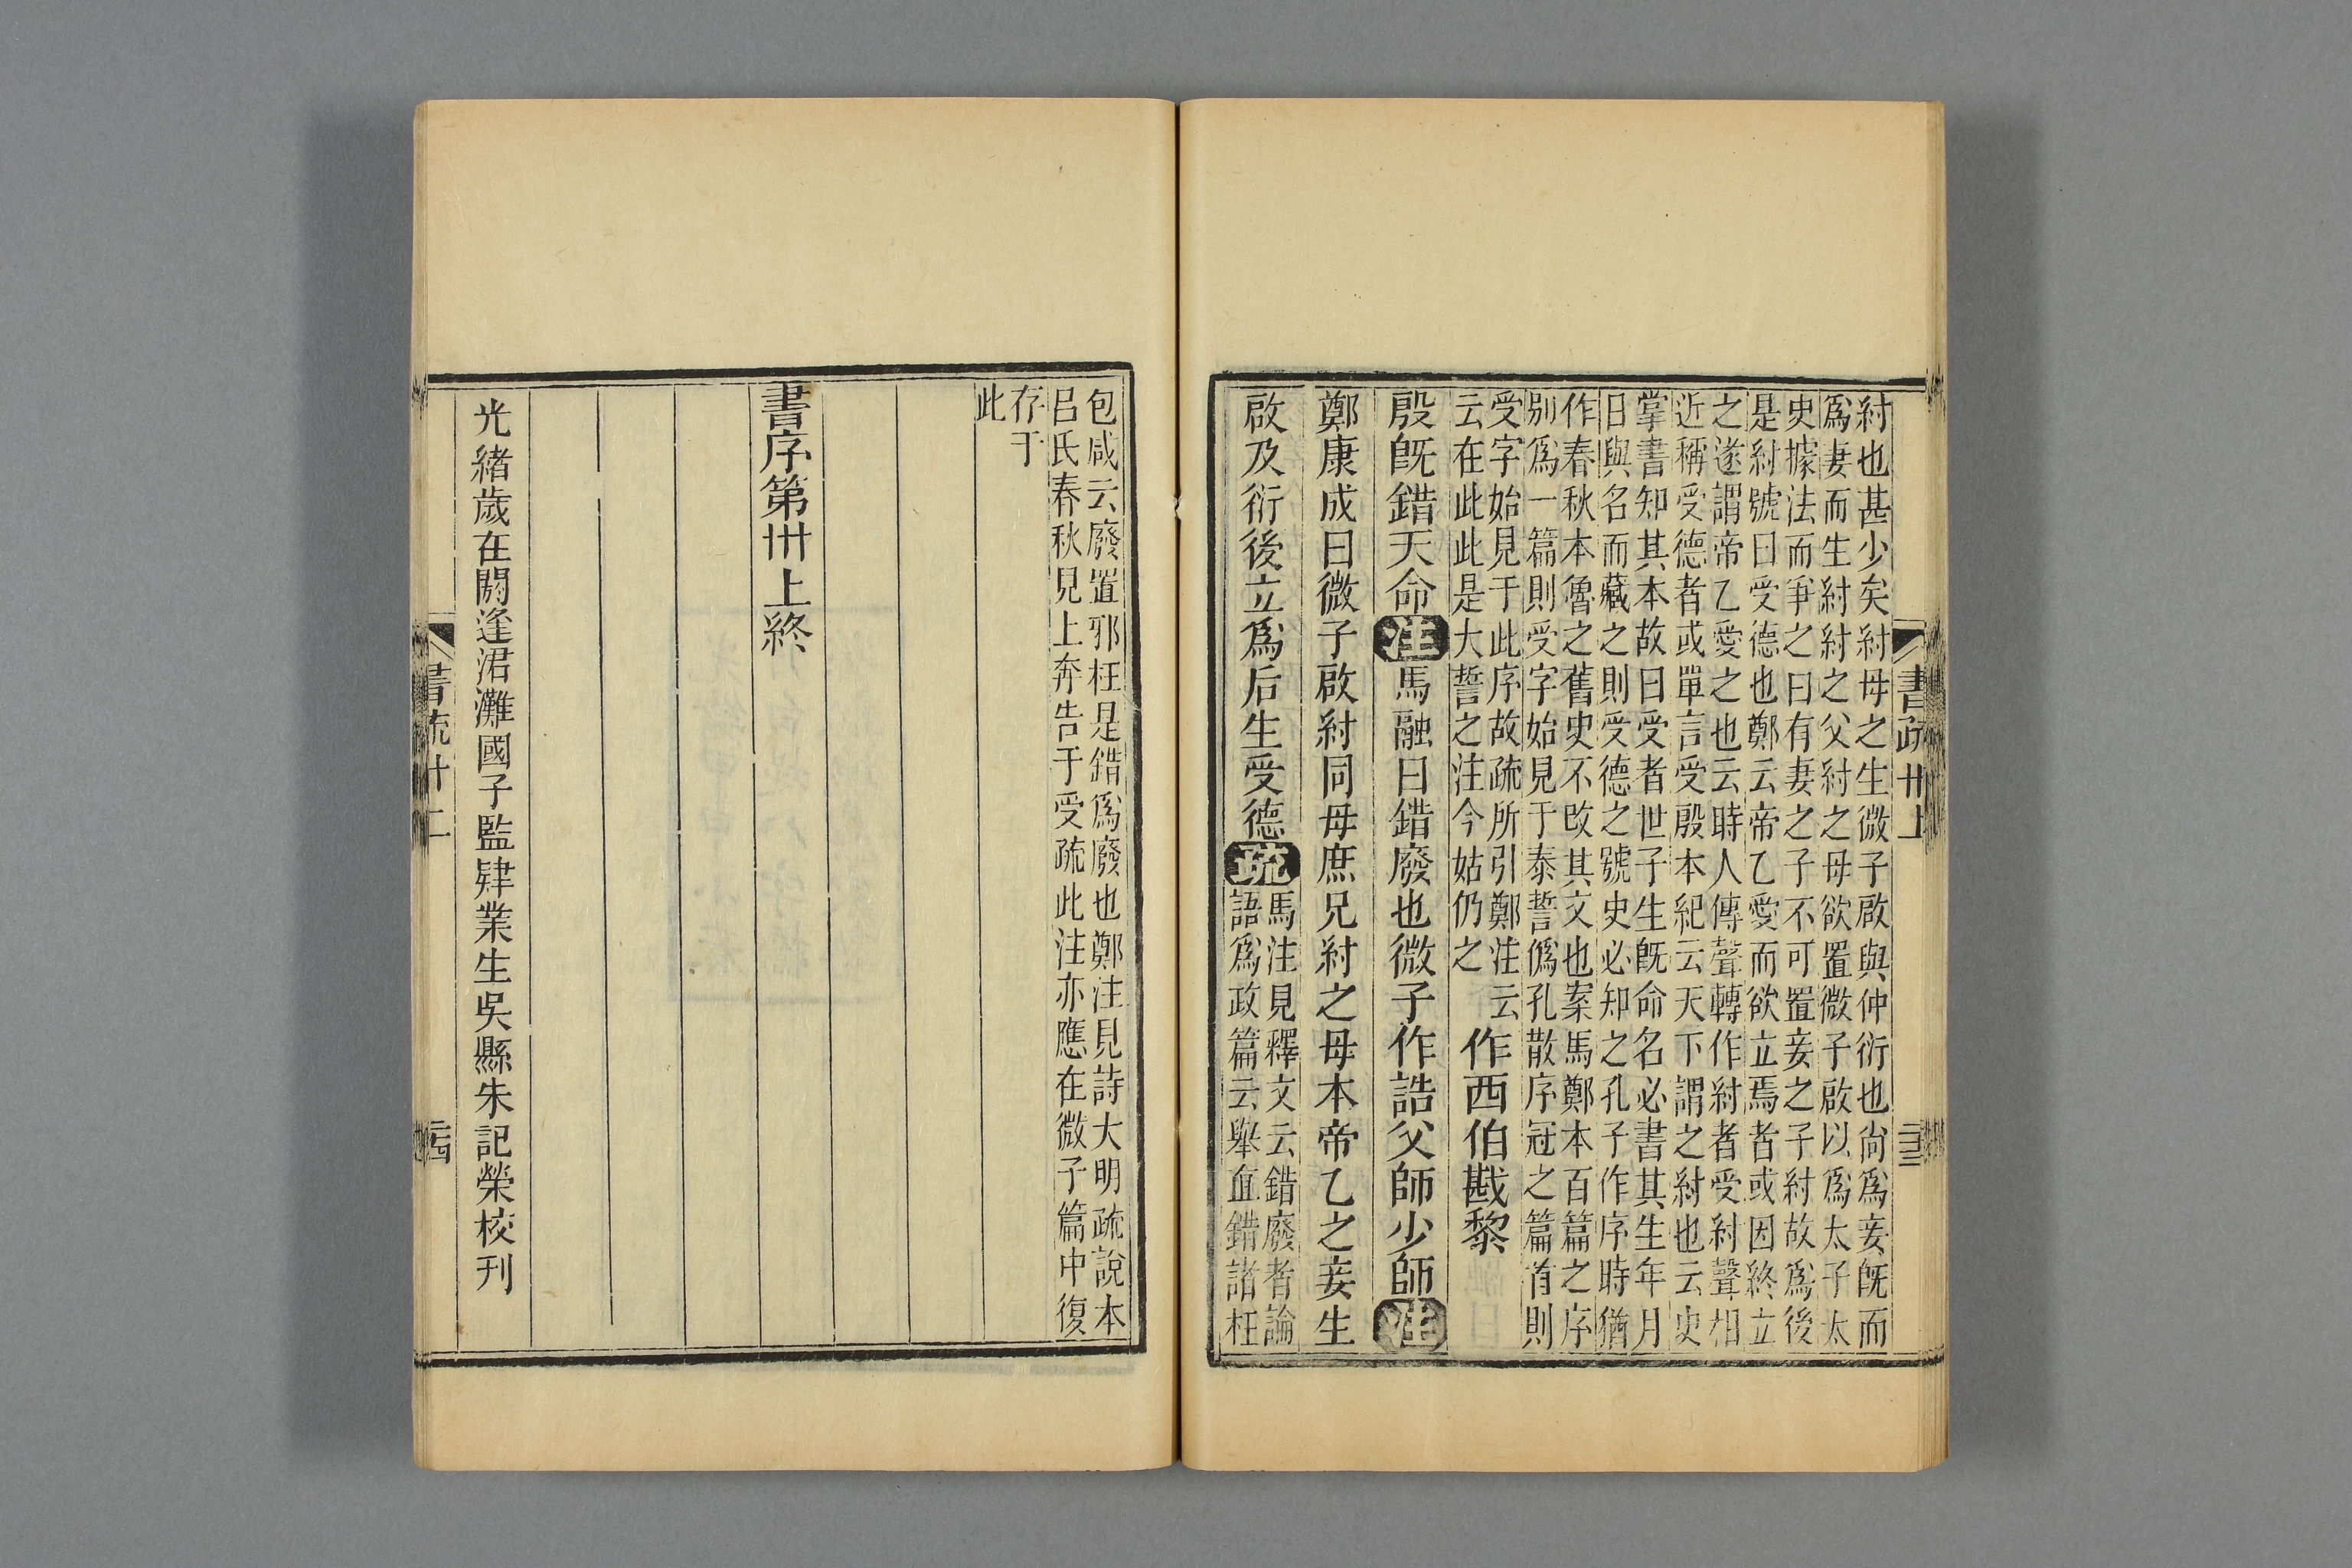 書疏卅上
紂也甚少矣紂母之生微子啟與仲衍也尙爲妾旣而
爲妻而生紂紂之父紂之母欲置微子啟以爲太子太
史據法而爭之曰有妻之子不可置妾之子紂故爲後
是紂號曰受德也鄭云帝乙愛而欲立焉者或因終立
之遂謂帝乙愛之也云時人傳聲轉作紂者受紂聲相
近稱受德者或單言受殷本紀云天下謂之紂也云史
掌書知其本故曰受者世子生旣命名必書其生年月
日與名而藏之則受德之號史必知之孔子作序時猶
作春秋本魯之舊史不改其文也案馬鄭本百篇之序
別爲一篇則受字始見于泰誓僞孔散序冠之篇首則
受字始見于此序故疏所引鄭注云
云在此此是大誓之注今姑仍之
作西伯戡黎
殷旣錯天命注馬融曰錯廢也微子作誥父師少師注
鄭康成曰微子啟紂同母庶兄紂之母本帝乙之妾生
啟及衍後立爲后生受德疏
馬注見釋文云錯廢者論
語爲政篇云舉直錯諸枉
包咸云廢置邪枉是錯爲廢也鄭注見詩大明疏說本
呂氏春秋見上奔告于受疏此注亦應在微子篇中復
存于
此
書序第卅上終
光緒歲在閼逢涒灘國子監肄業生吳縣朱記榮校刊